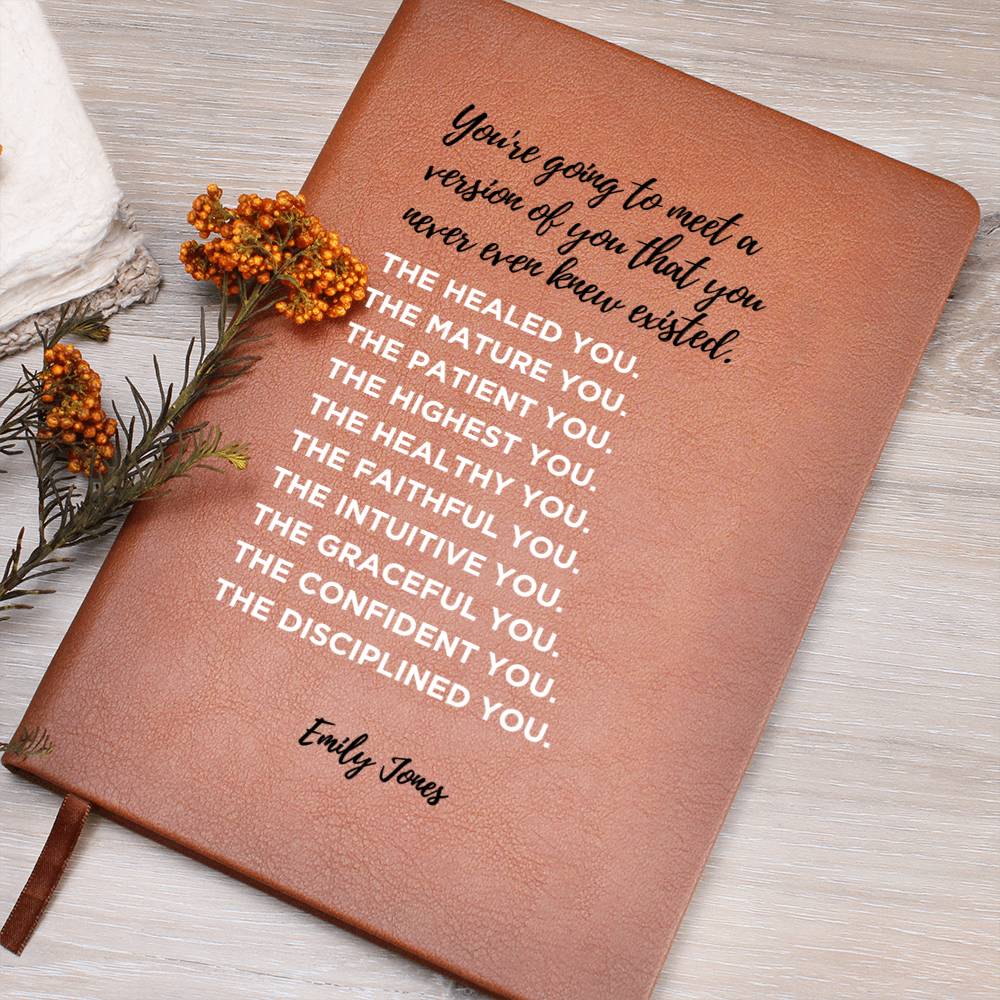 You're going to meet a
version of you that you
never even knew existed.
THE HEALED YOU.
THE MATURE YOU.
THE PATIENT YOU.
THE HIGHEST YOU.
THE HEALTHY YOU.
THE FAITHFUL YOU.
THE INTUITIVE YOU.
THE GRACEFUL YOU.
THE CONFIDENT YOU.
THE DISCIPLINED YOU.
Emily Jones